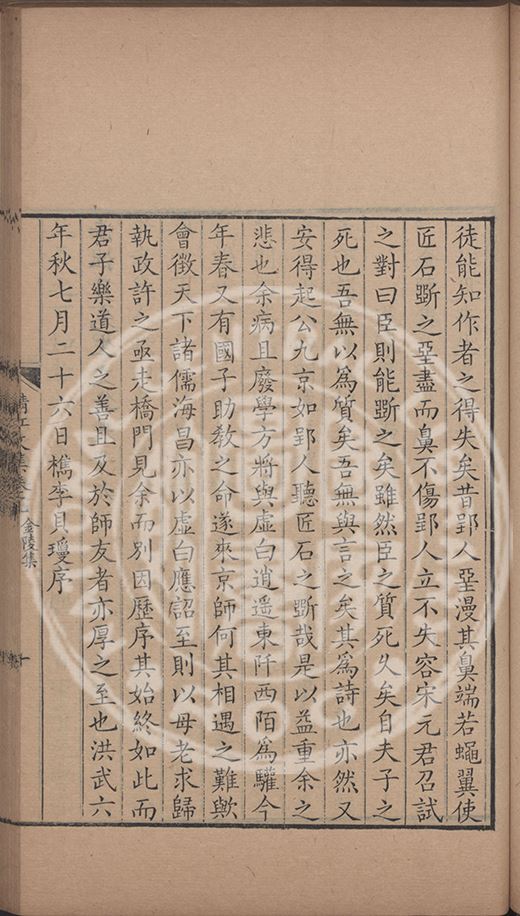 徒能知作者之得失矣昔郢人堊漫其鼻端若蠅翼使
匠石斲之堊盡而鼻不傷郢人立不失容宋元君召試
之對曰臣則能斲之矣雖然臣之質死久矣自夫子之
死也吾無以爲質矣吾無與言之矣其爲詩也亦然又
安得起公九京如郢人聽匠石之斲哉是以益重余之
悲也余病且廢學方將與虛白逍遥東阡西陌爲驩今
年春又有國子助教之命遂來京師何其相遇之難歟
會徵天下諸儒海昌亦以虛白應詔至則以母老求歸
執政許之亟走橋門見余而别因歷序其始終如此而
君子樂道人之善且及於師友者亦厚之至也洪武六
年秋七月二十六日檇李貝瓊序
金陵集